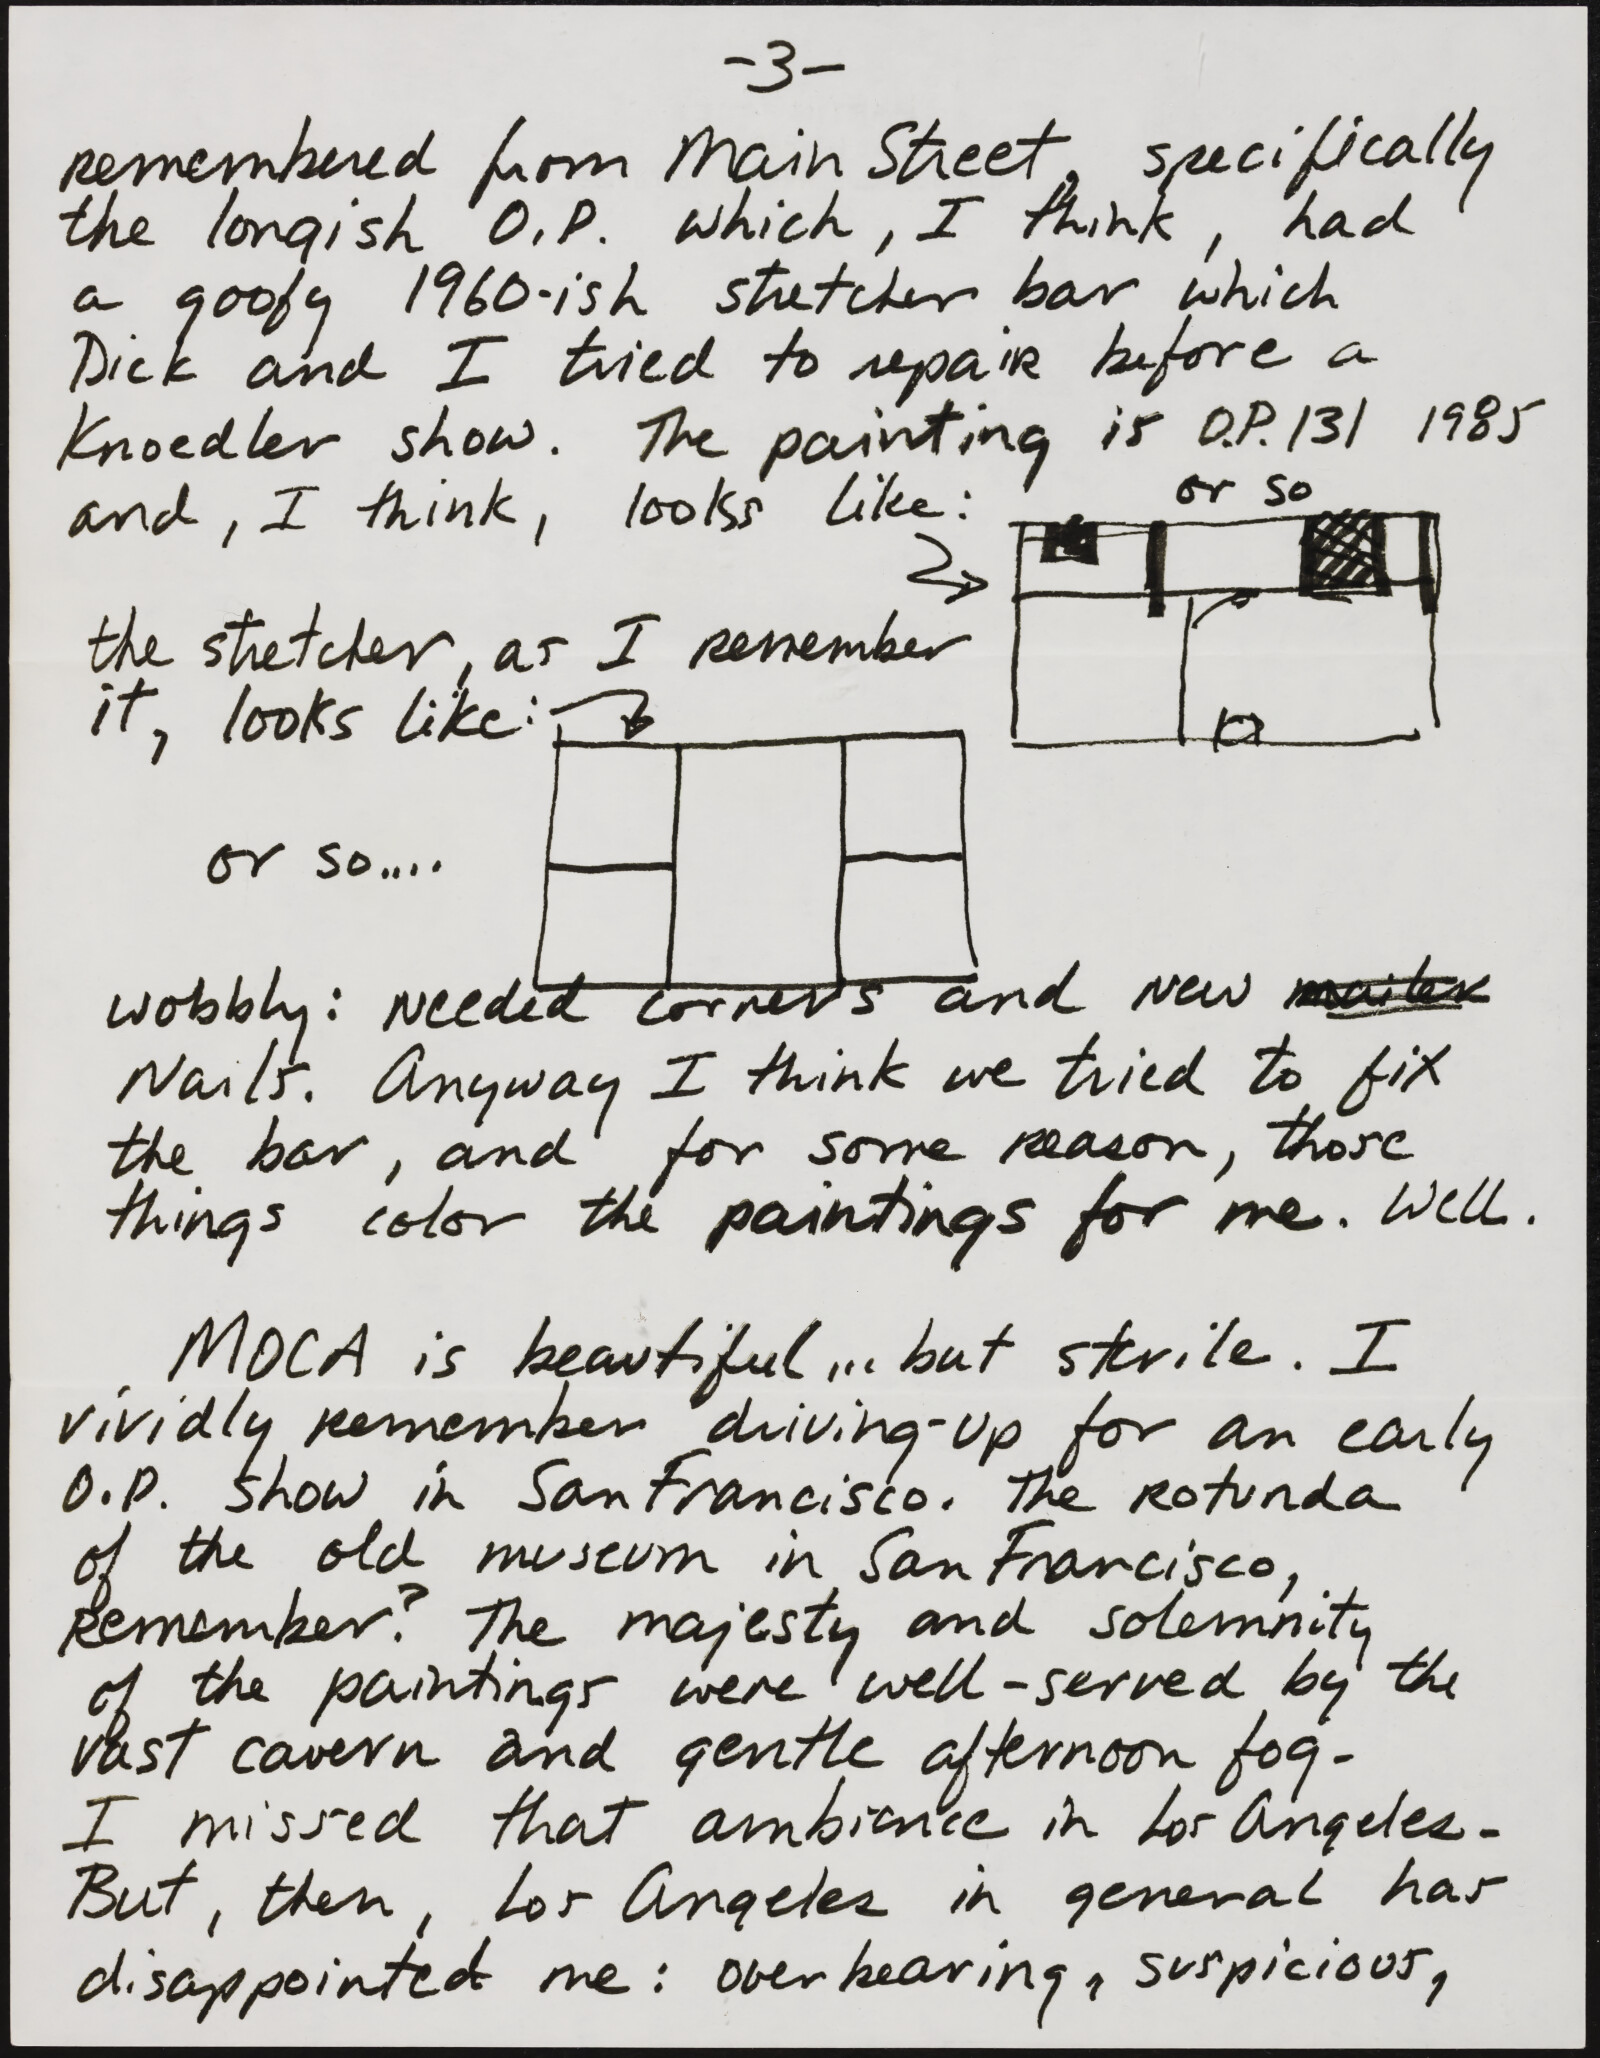 -3-
remembered from Main Street, specifically
the longish O.P. which, I think, had
a goofy 1960-ish stretcher bar which
Dick and I tried to repair before a
Knoedler show. The painting is O.P. 131 1985
or so
and, I think, looks like:
the stretcher, as I remember
it, looks like:
or so....
wobbly: needed corners and new
Nails. Anyway I think we tried to fix
the bar, and for some reason, those
things color the paintings for me. Well.
MOCA is beautiful... but sterile. I
vividly remember driving-up for an early
O.P. show in San Francisco. The rotunda
of the old museum in San Francisco,
remember? The majesty and solemnity
of the paintings were well-served by the
vast cavern and gentle afternoon fog-
I missed that ambiance in Los Angeles-
But, then, Los Angeles in general has
disappointed me: overbearing, suspicious,